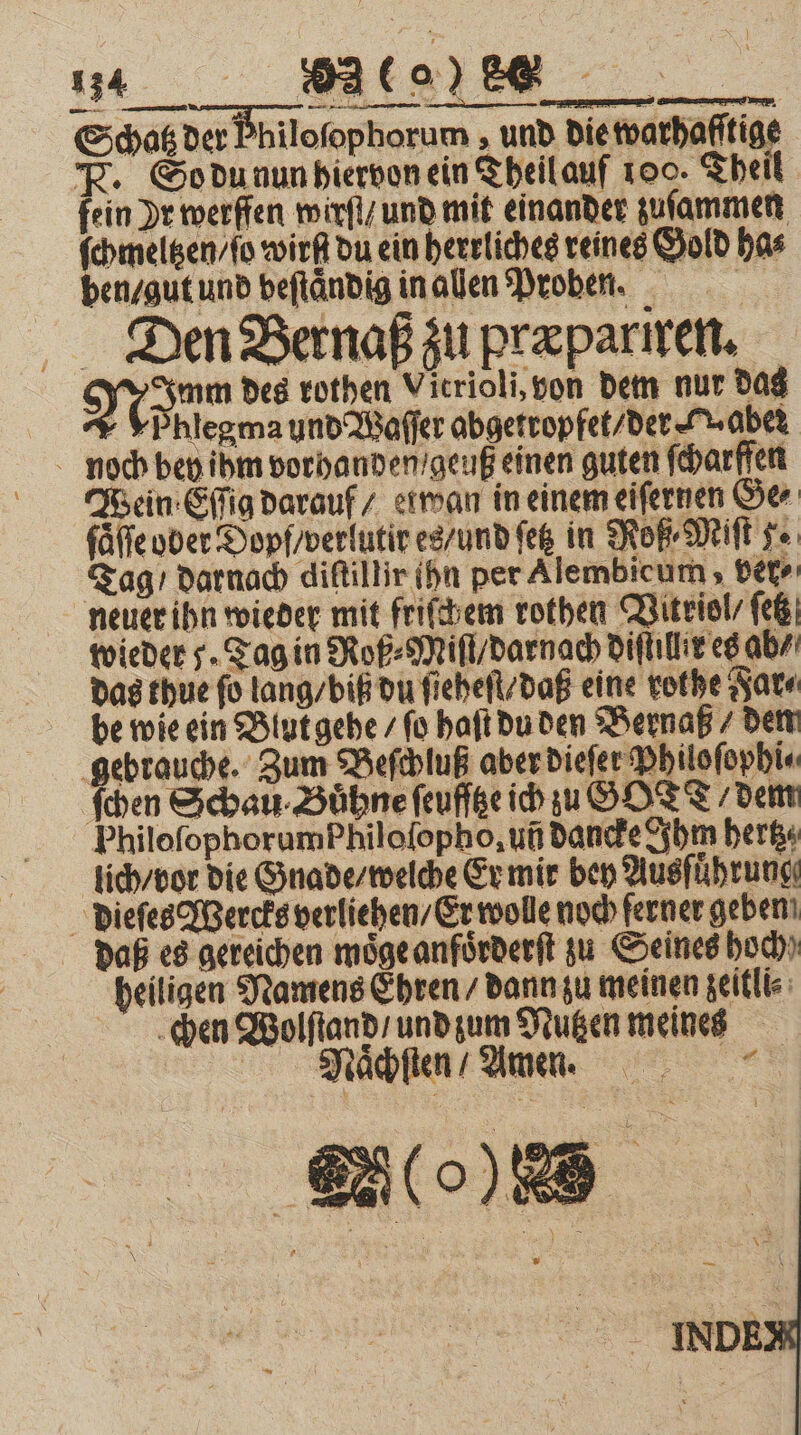 134 (o)
Schatz der Philoſophorum, und die warhafftige
R. So du nun hiervon ein Theil auf 100. Theil
fein werffen wirſt/ und mit einander zuſammen
ſchmeltzen/ ſo wirſt du ein herrliches reines Gold ha⸗
ben/ gut und beſtaͤndig in allen Proben.
Den Bernaß zu præpariren.
NImm des rothen Vitrioli, von dem nur das
Phlegma und Waſſer abgetropfet/ der aber
noch bey ihm vorhanden/ geuß einen guten ſcharffen
Wein⸗Eſſig darauf / etwan in einem eiſernen Ge⸗
faͤſſe oder Dopf/ verlutir es/ und ſetz in Roß⸗Miſt 5.
Tag/ darnach diſtillir ihn per Alembicum, ver⸗
neuer ihn wieder mit friſchem rothen Vitriol/ ſetz
wieder 5. Tag in Roß⸗Miſt/ darnach diſtillir es ab/
das thue ſo lang/ biß du ſieheſt/ daß eine rothe Far⸗
be wie ein Blut gehe / ſo haſt du den Bernaß / dem
gebrauche. Zum Beſchluß aber dieſer Philoſophi⸗
ſchen Schau⸗Buͤhne ſeufftze ich zu GOTT / dem
Philoſophorum Philoſopho, uñ dancke Ihm hertz⸗
lich/ vor die Gnade/ welche Er mir bey Ausfuͤhrung
dieſes Wercks verliehen/ Er wolle noch ferner geben
daß es gereichen moͤge anfoͤrderſt zu Seines hoch⸗
heiligen Namens Ehren / dann zu meinen zeitli⸗
chen Wolſtand/ und zum Nutzen meines
Naͤchſten / Amen.
(o)
INDEX